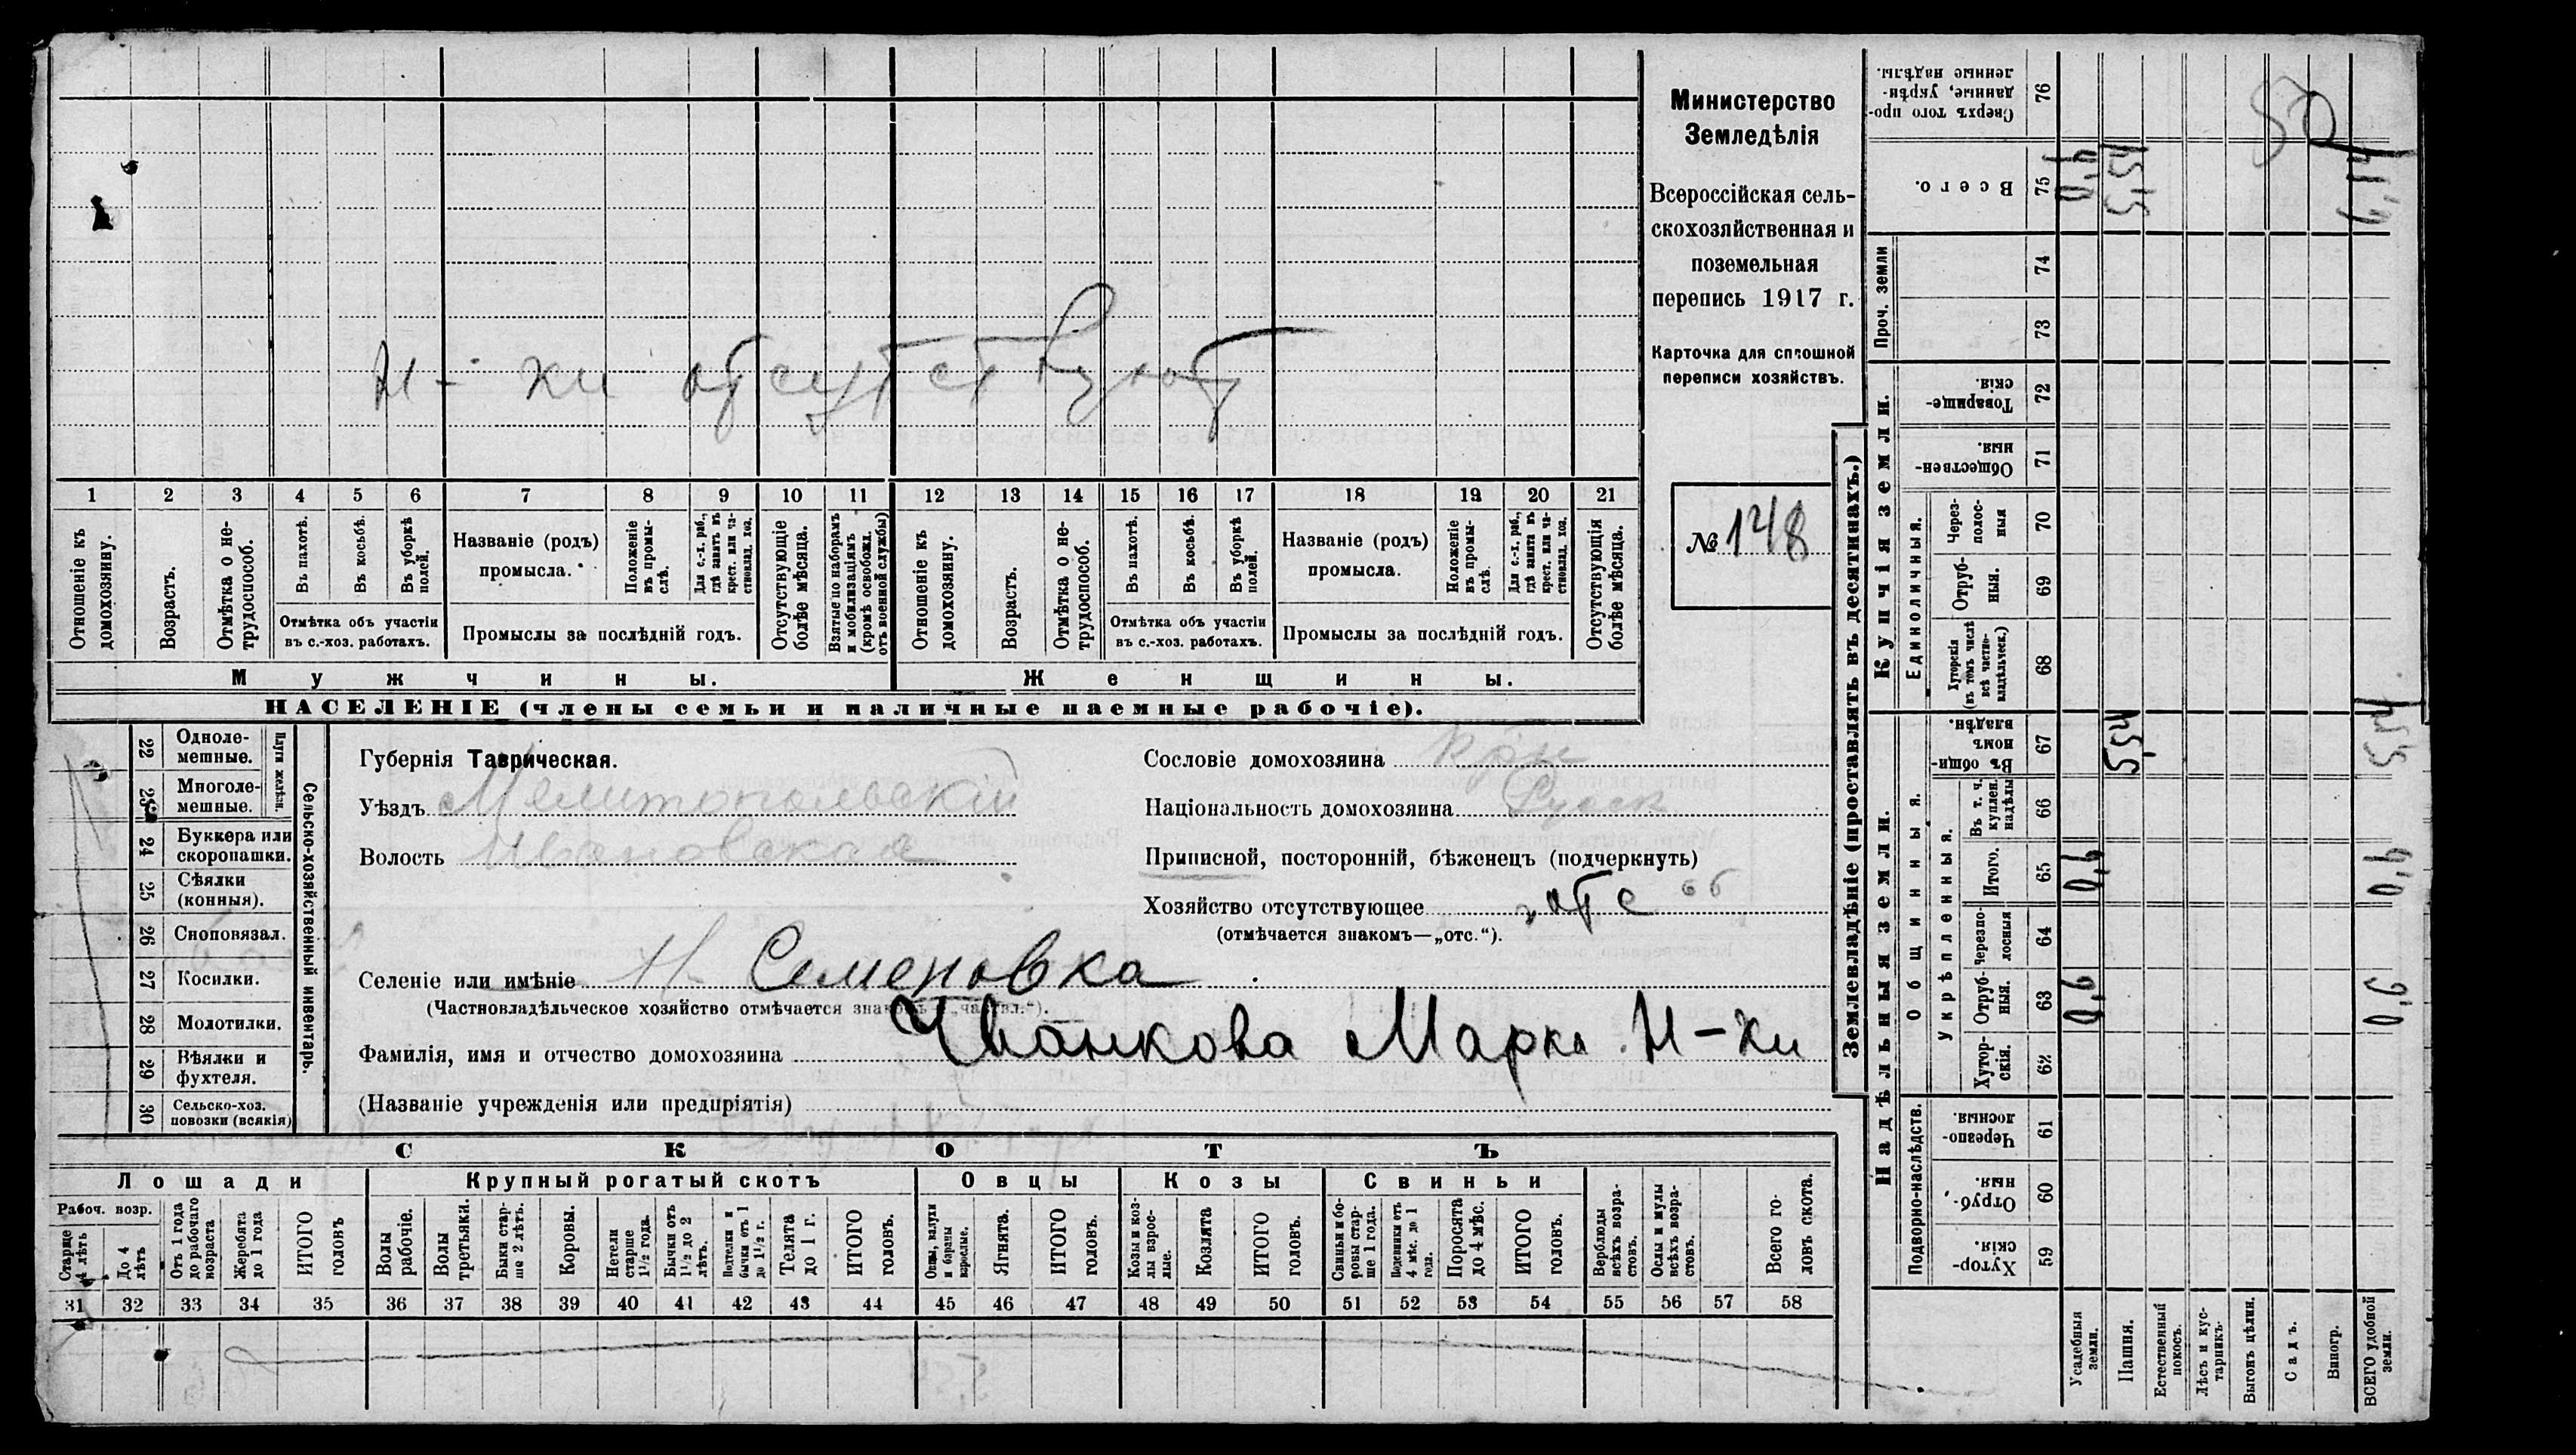 Н-ки отсутствуют
1 2 3 4 5 6 7 8 9 10 11 12 13 14 15 16 17 18 19 20 21
Отношеніе къ домохозяину.
Возрастъ.
Отмѣтка о не-трудоспособ.
Въ пахотѣ.
Въ косьбѣ.
Въ уборкѣ полей.
Отмѣтка объ участіи
въ с.-хоз. работахъ.
Названіе (родъ)
промысла.
Положеніе въ промы-слѣ.
Для с.-х. раб., гдѣ занятъ въ крест. или ча-стновлад. хоз.
Промыслы за послѣдній годъ.
Отсутствующіе болѣе мѣсяца.
Взятые по наборамъ и мобилизаціямъ (кромѣ освобожд. отъ военной службы)
Отношеніе къ домохозяину.
Возрастъ.
Отмѣтка о не-трудоспособ.
Въ пахотѣ.
Въ косьбѣ.
Въ уборкѣ полей.
Отмѣтка объ участіи
въ с.-хоз. работахъ.
Названіе (родъ)
промысла.
Положеніе въ промы-слѣ.
Для с.-х. раб., гдѣ занята въ крест. или ча-стновлад. хоз.
Промыслы за послѣдній годъ.
Отсутствующія болѣе мѣсяца.
Мужчины.
Женщины.
НАСЕЛЕНІЕ (члены семьи и наличные наемные рабочіе).
Министерство
Земледѣлія
Всероссійская сель-
скохозяйственная и
поземельная
перепись 1917 г.
Карточка для сплошной
переписи хозяйствъ.
№ 148
22 Одноле-мешные.
23 Многоле-мешные.
Плуги желѣзн.
24 Буккера или скоропашки.
25 Сѣялки (конныя).
26 Сноповязал.
27 Косилки.
28 Молотилки.
29 Вѣялки и фухтеля.
30 Сельско-хоз. повозки (всякія)
Сельско-хозяйственный инвентарь.
Губернія Таврическая.
Уѣздъ Мелитопольскій
Волость Ивановская
Селеніе или имѣніе Н- Семеновка
(Частновладѣльческое хозяйство отмѣчается знакомъ „частвл.“).
Фамилія, имя и отчество домохозяина Чванкова Марка Н-ки
(Названіе учрежденія или предпріятія)
Сословіе домохозяина Крн
Національность домохозяина Русск
Приписной, посторонній, бѣженецъ (подчеркнуть)
Хозяйство отсутствующее отс
(отмѣчается знакомъ—„отс.“).
СКОТЪ
Лошади
Крупный рогатый скотъ
Овцы
Козы
Свиньи
Рабоч. возр.
Старше 4 лѣтъ
До 4 лѣтъ
Отъ 1 года до рабочаго возраста
Жеребята до 1 года
ИТОГО головъ
Волы рабочіе.
Волы третьяки.
Быки стар-ше 2 лѣтъ.
Коровы.
Нетели старше 1½ года.
Бычки отъ 1½ до 2 лѣтъ.
Подтелки и бычки отъ 1 до 1½ г.
Телята до 1 г.
ИТОГО головъ.
Овцы, валухи и бараны взрослые.
Ягнята.
ИТОГО головъ.
Козы и коз-лы взрос-лые.
Козлята
ИТОГО головъ.
Свиньи и бо-ровы стар-ше 1 года.
Подсвинки отъ 4 мѣс. до 1 года.
Поросята до 4 мѣс.
ИТОГО головъ.
Верблюды всѣхъ возра-стовъ.
Ослы и мулы всѣхъ возра-стовъ.
Всего го-ловъ скота.
31 32 33 34 35 36 37 38 39 40 41 42 43 44 45 46 47 48 49 50 51 52 53 54 55 56 57 58
Землевладѣніе (проставлять въ десятинахъ.)
Надѣльныя земли.
Купчія земли.
Проч. земли
Подворно-наслѣдств.
Общинныя.
Укрѣпленныя.
Единоличныя.
Хутор-скія. 59
Отруб-ныя. 60
Черезпо-лосныя 61
Хутор-скія. 62
Отруб-ныя. 63 0,6 0,6
Черезпо-лосныя 64
Итого. 65 0,6 0,6
Въ т. ч. куплен. надѣлы 66
Въ общин-номъ владѣн. 67 5,54 5,54
Хуторскія (въ томъ числѣ всѣ частно-владѣльческ.) 68
Отруб-ныя. 69
Через-полос-ныя 70
Обществен-ныя. 71
Товарище-скія. 72
73
74
Всего. 75 0,6 5,54 6,14
Сверхъ того про-данные, укрѣп-ленные надѣлы. 76
Усадебныя земли.
Пашня.
Естественный покосъ.
Лѣсъ и кус-тарникъ.
Выгонъ цѣлин.
Садъ.
Виногр.
ВСЕГО удобной земли.